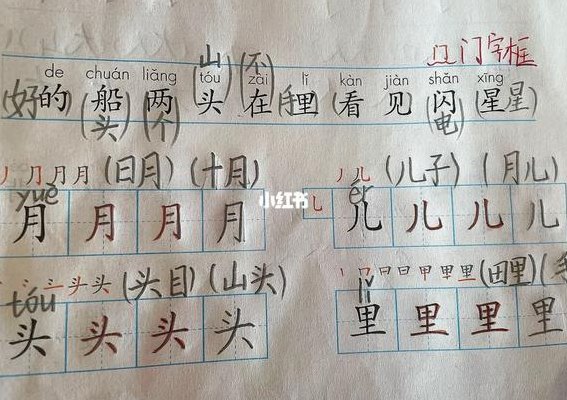 门字框
de chuán liǎng tóu zài lǐ kàn jiàn shǎn xīng
(好的 (船头) (两个) (山头) (不在 (手里 (看见 (闪电) (星星
月月 (日月) (十月) 儿 (儿子) (月儿)
yuè ér
月 月 月 月 儿 儿 儿 儿
小红书
头头 (头目) (山头) 日曰甲里里 (田里)
tóu lǐ
头 头 头 头 里 里 里 里